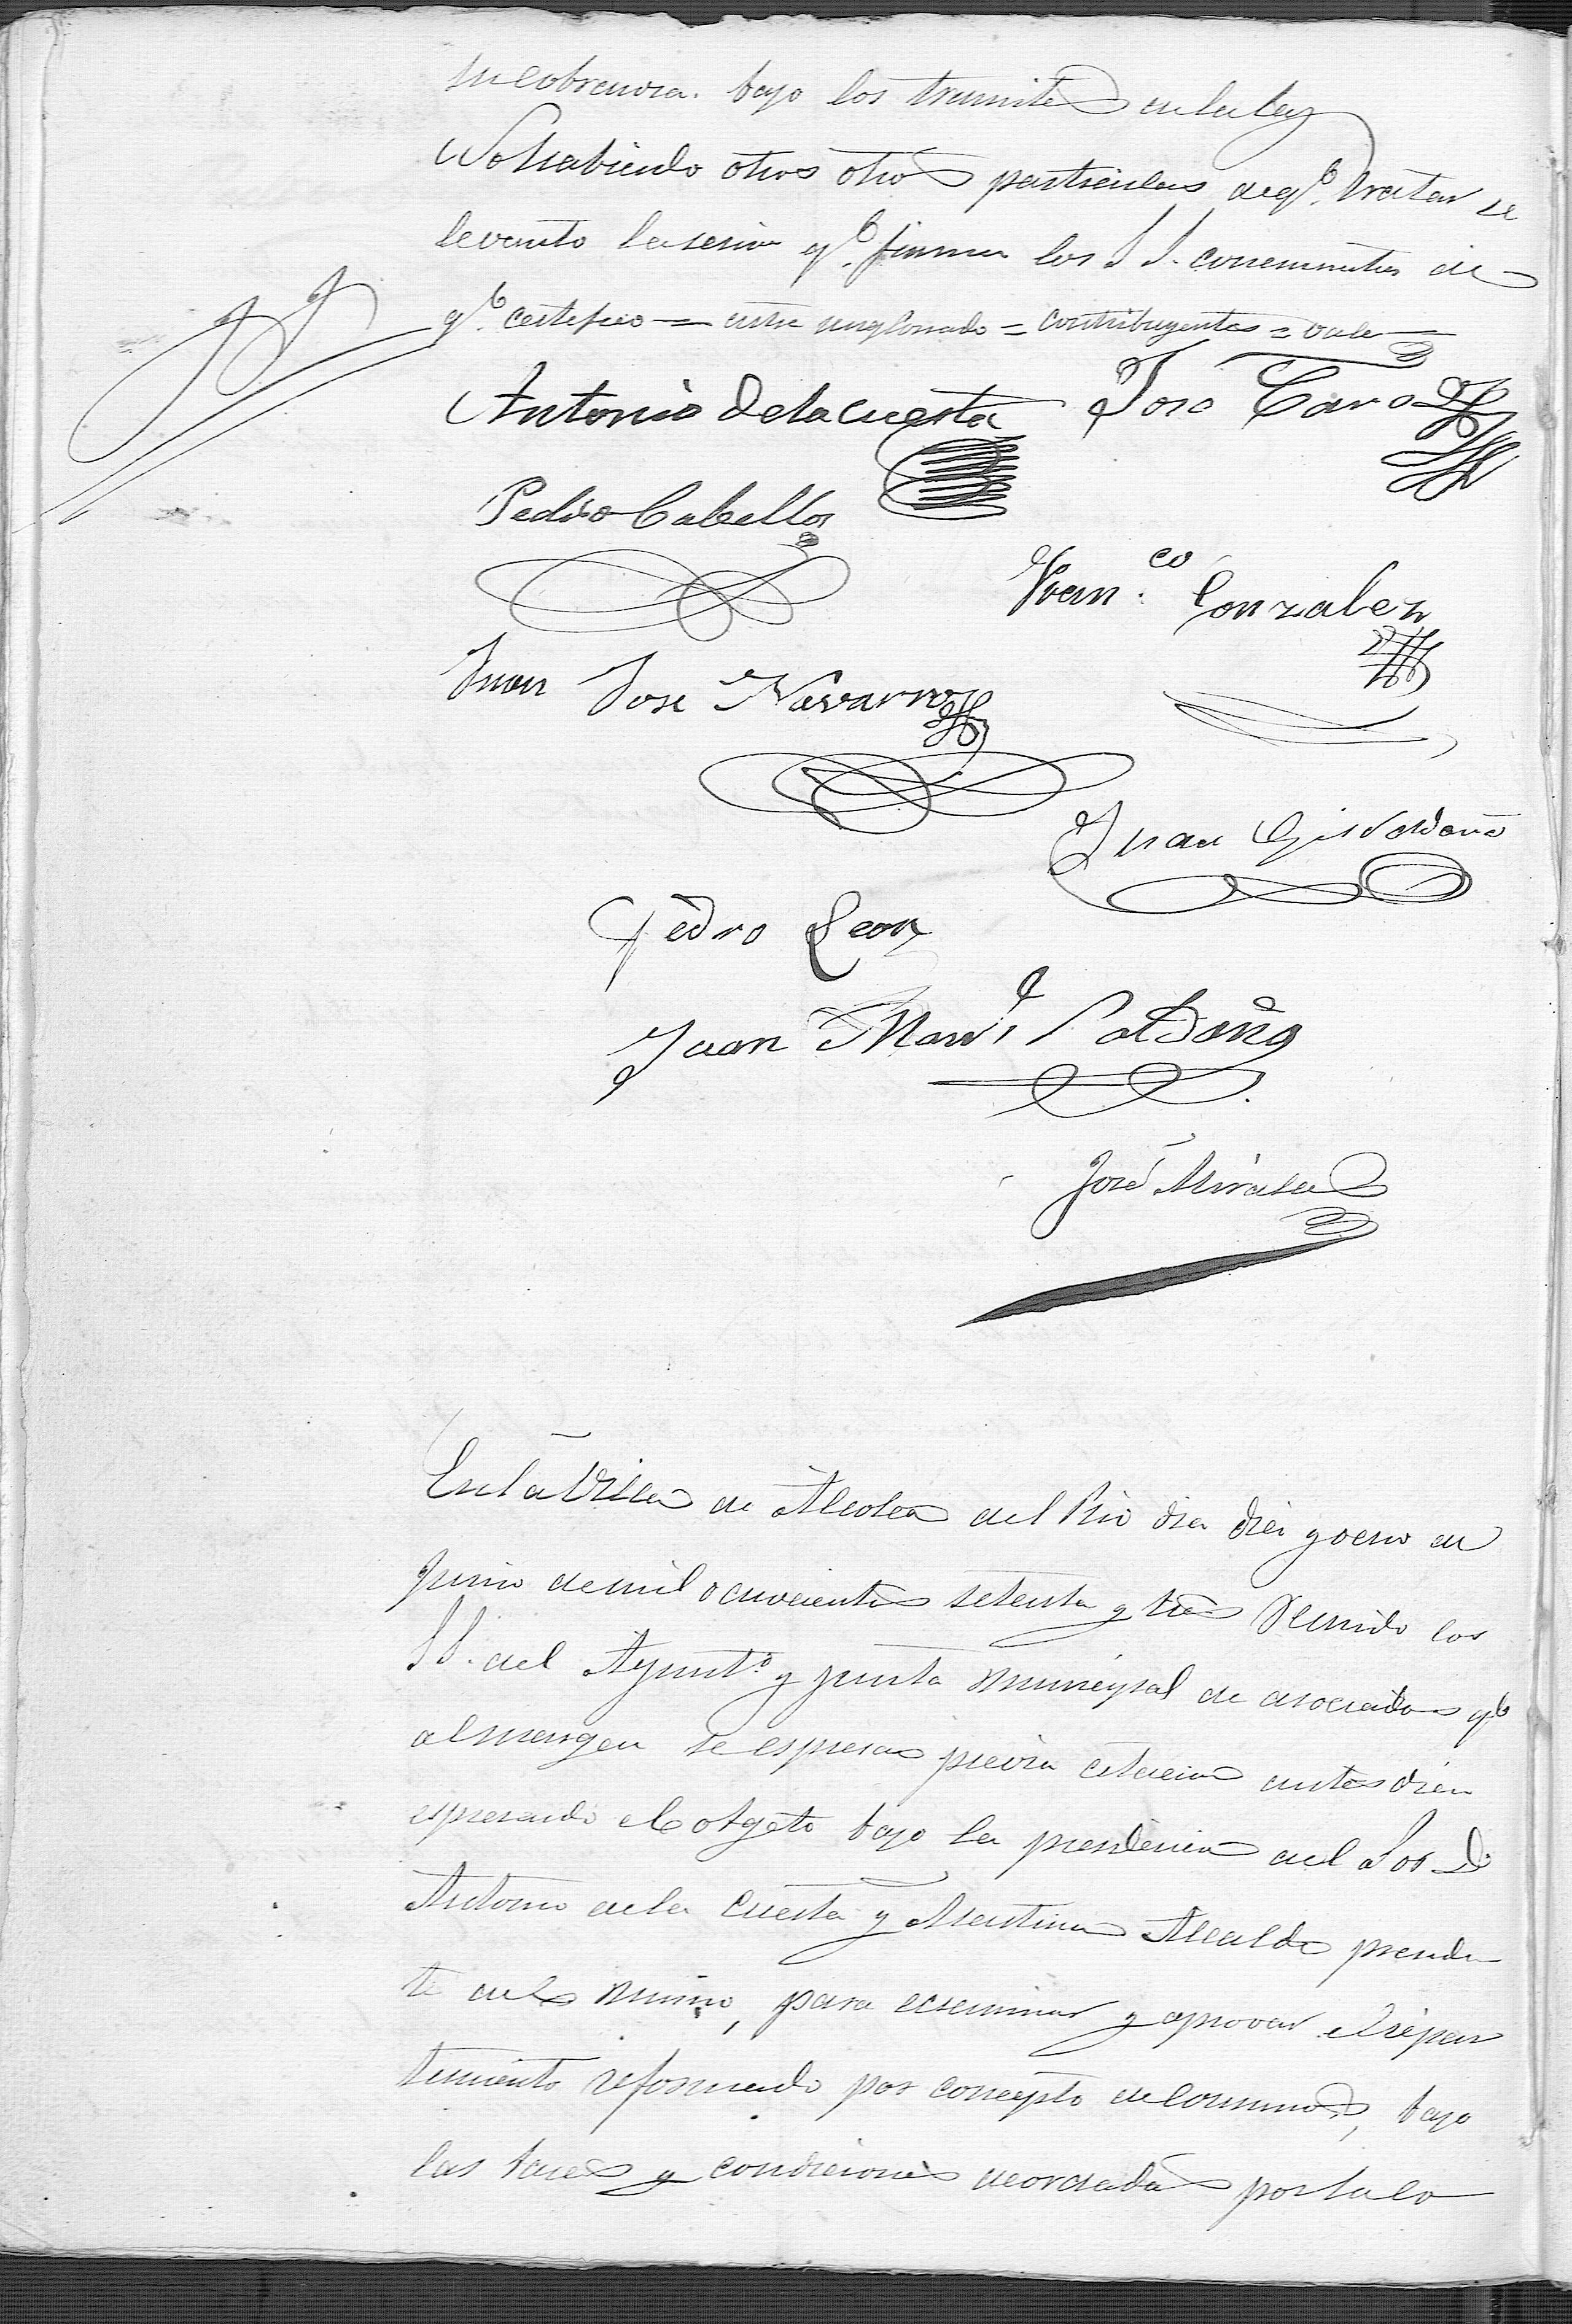 su cobranza. bajo los tramites de la Ley
No habiendo otros otros particulares de q.e tratar se
levanto la sesion q.e firman los S S. concurrentes de
q.e certifico = entre renglonado = contribuyentes = vale =
Antonio De la Cuesta Jose Caro
Pedro Cabello
Fran.co Gonzalez
Juan Jose Navarro
Juan Gil Saldaña
Pedro Leon
Juan Man.l Saldaña
José
En la Villa de Alcolea del Rio dia diez y ocho de
Junio de mil ochocientos setenta y tres Reunido los
S S. del Ayunt.o y junta municipal de asociados q.e
al margen se espresan previa citacion ante diem
espresando el objeto bajo la presidencia del Sor. D.
Antonio de la Cuesta y Alcalde presiden
te del mismo, para ecsaminar y aprovar el repar
timiento reformado por concepto de consumos, bajo
las bases y condiciones acordadas por la Co